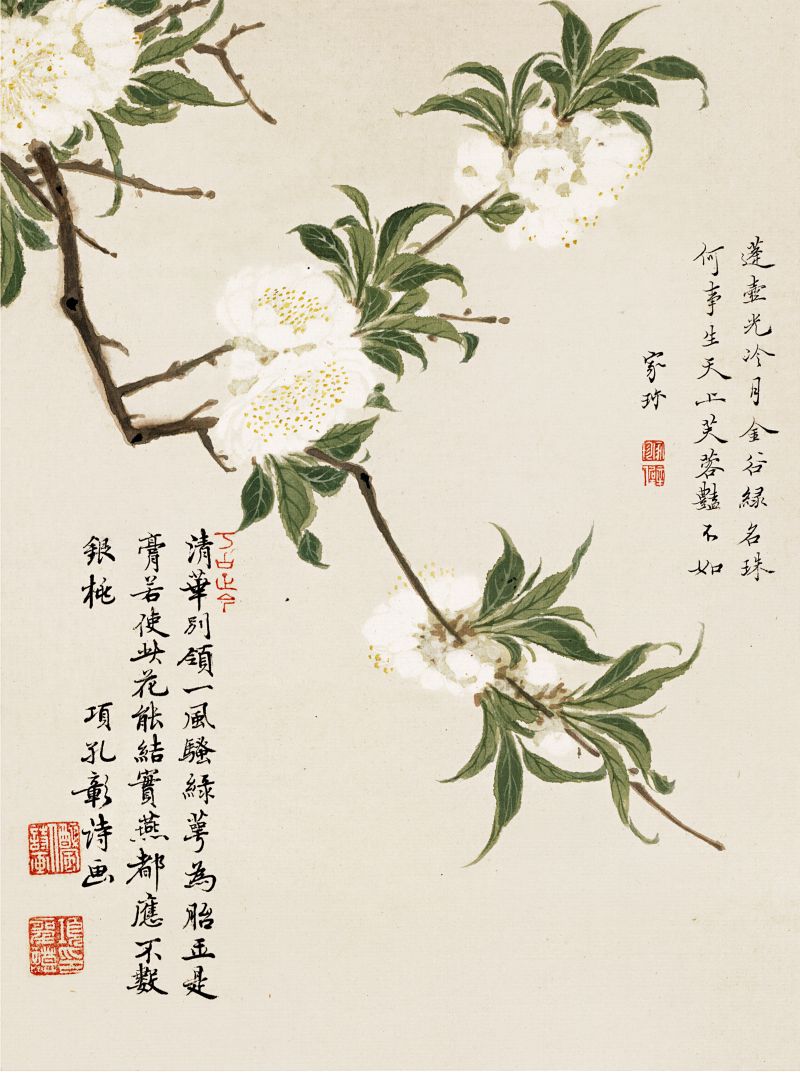 蓬壺光冷月金谷綠名珠
何事生天上芙蓉豔不如
家珎
清華別領一風騷綠萼為胎玉是
膏若使此花能結實燕都應不數
銀桃 項孔彰詩画